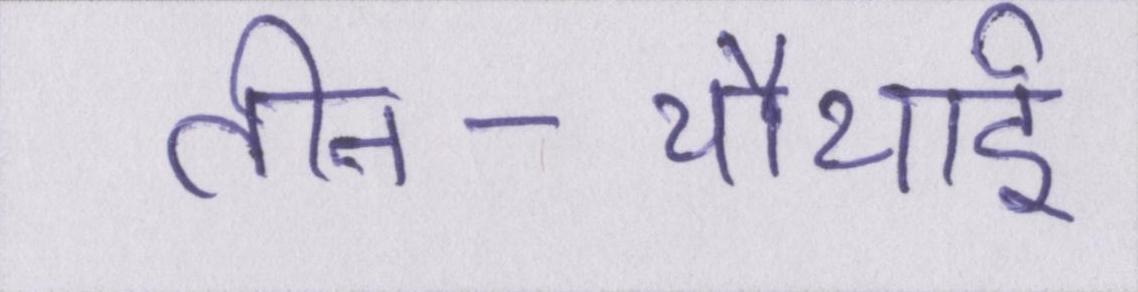 तीन-चौथाई